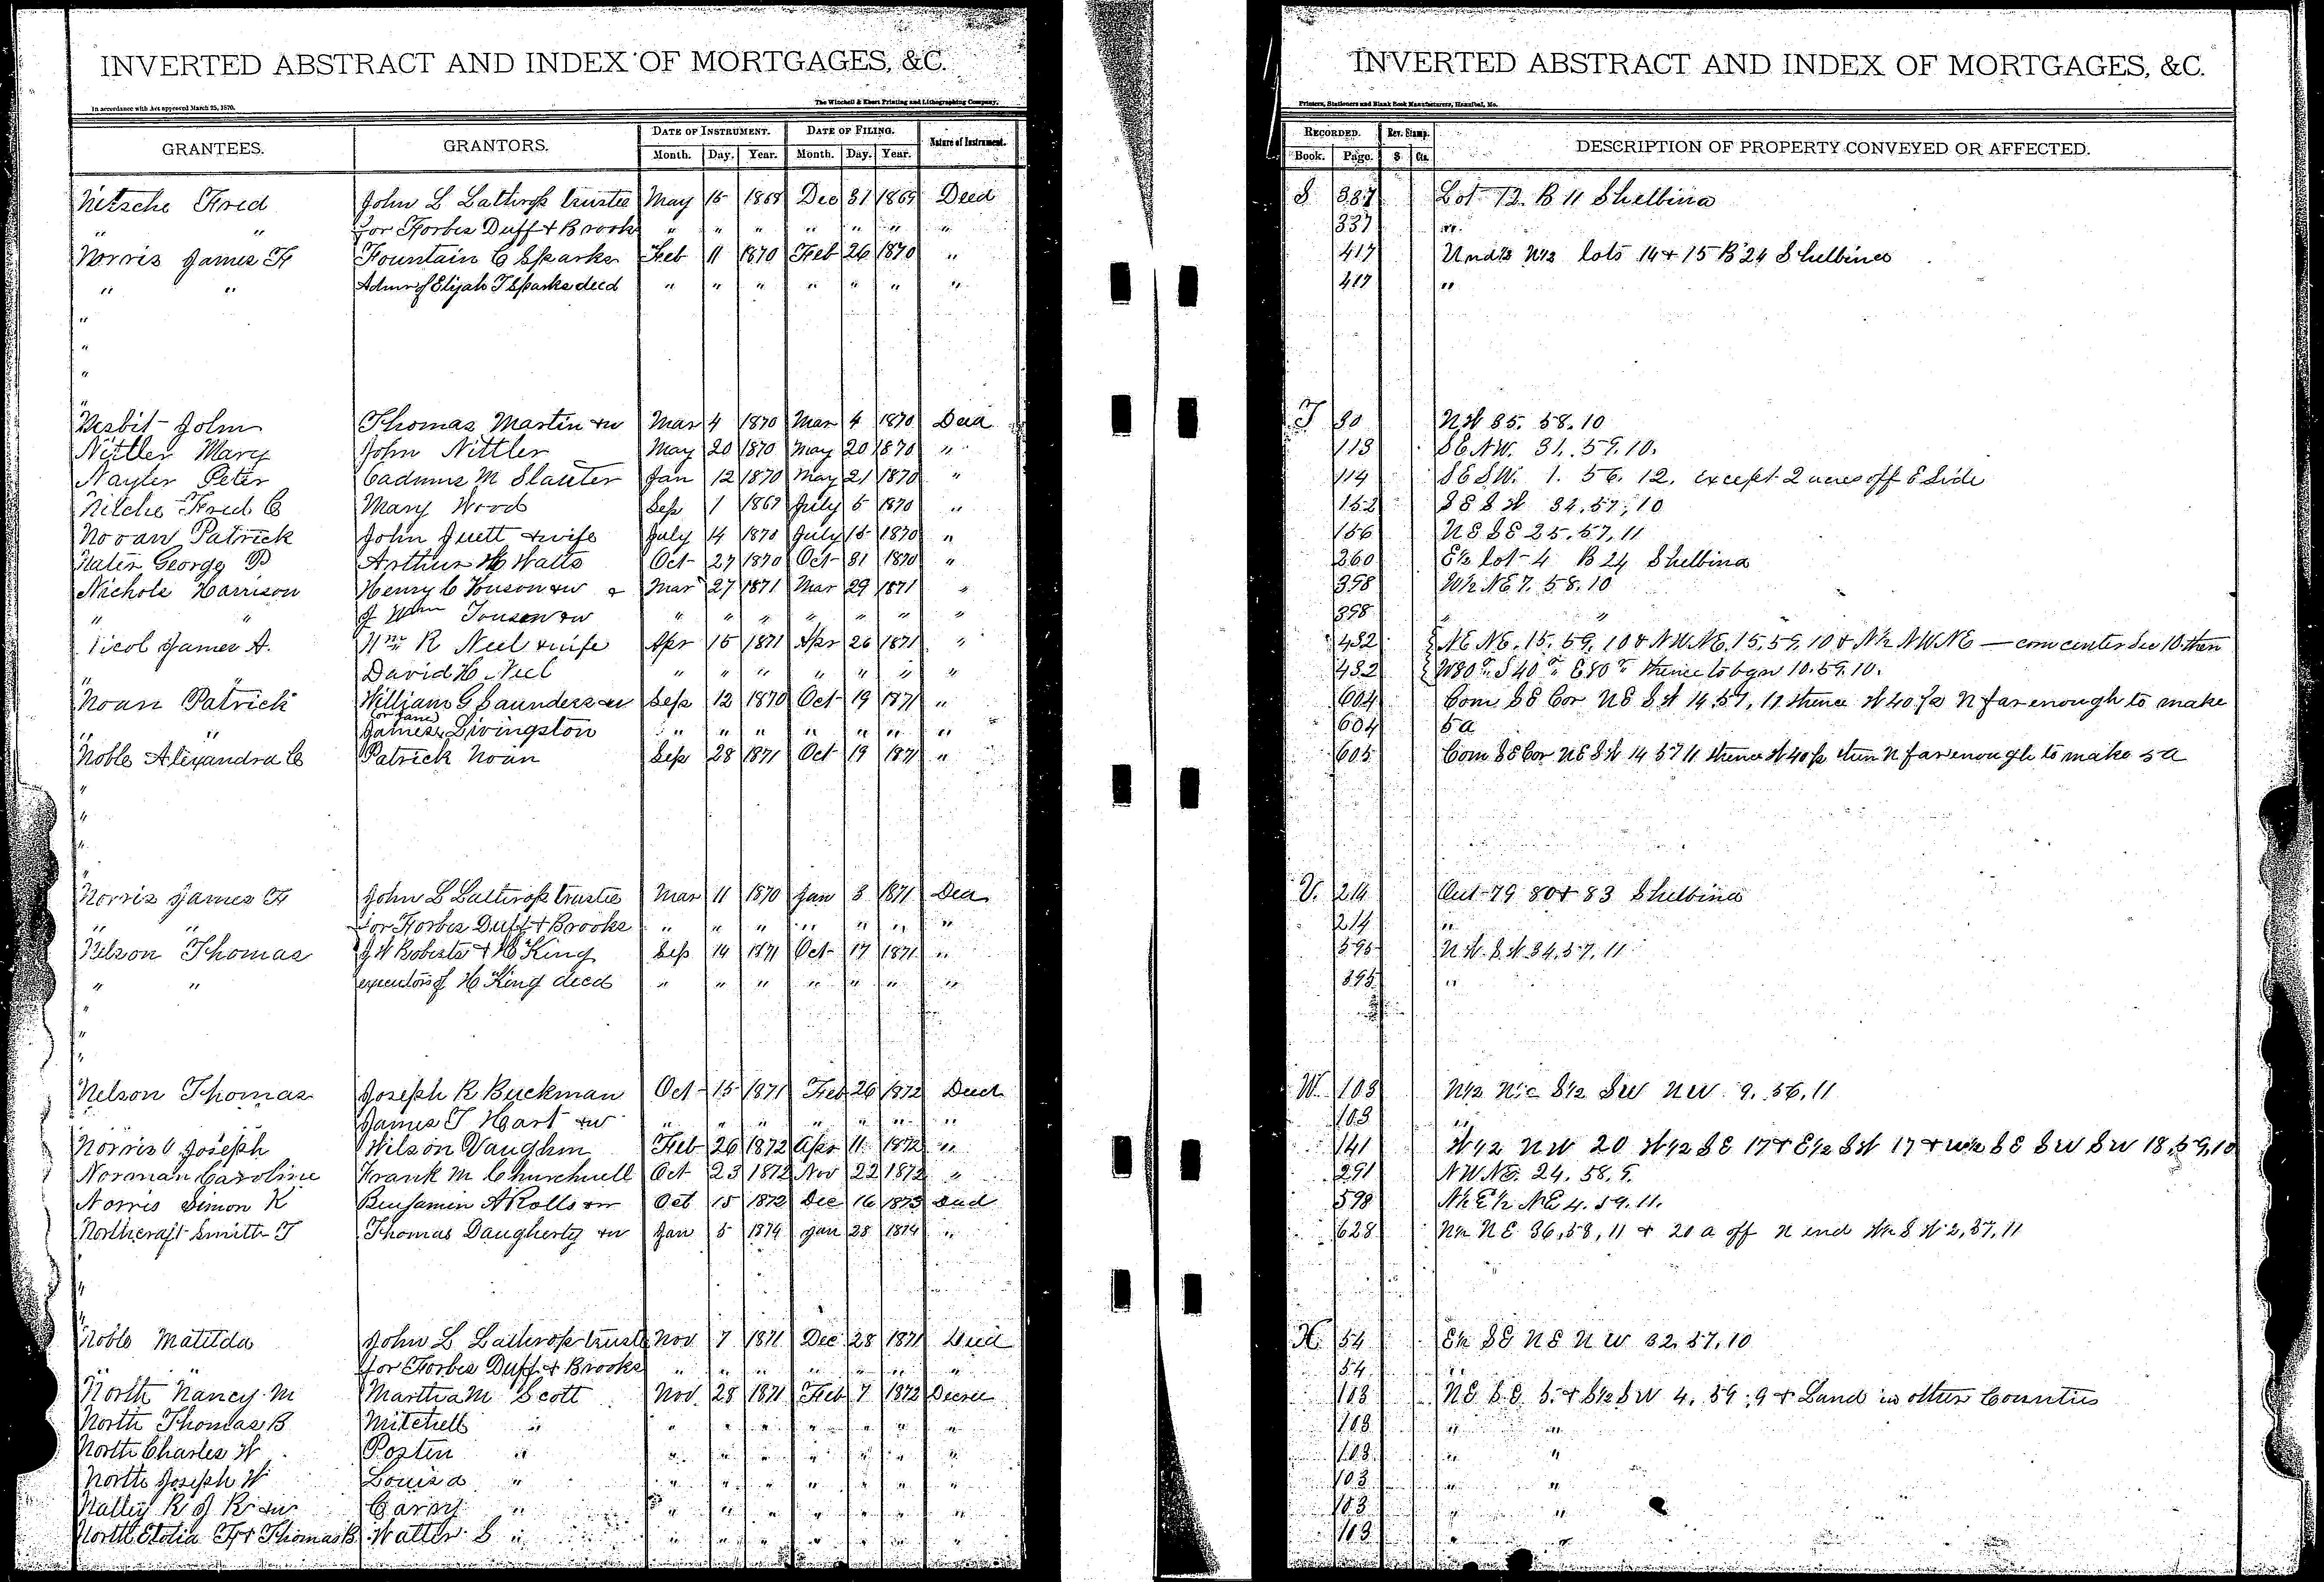 INVERTED ABSTRACT AND INDEX OF MORTGAGES, &C.
In accordance with Act approved March 25, 1870.
The Winchell & Ebert Printing and Lithographing Company.
GRANTEES. GRANTORS. DATE OF INSTRUMENT. DATE OF FILING. Nature of Instrument.
Month. Day. Year. Month. Day. Year.
Nitsche Fred John L Lathrop trustee May 15 1869 Dec 31 1869 Deed
" " for Forbes Duff & Brook " " " " " " "
Norris James F Fountain C Sparks Feb 11 1870 Feb 26 1870 "
" " Admr of Elijah T Sparks deed " " " " " " "
"
"
"
"
Nesbit John Thomas Martin & w Mar 4 1870 Mar 4 1870 Deed
Nittler Mary John Nittler May 20 1870 May 20 1870 "
Nayler Peter Cadmus M Slauter Jan 12 1870 May 21 1870 "
Nitche Fred C Mary Wood Sep 1 1867 July 5 1870 "
Noran Patrick John Juett & wife July 14 1870 July 15 1870 "
Nater George P Arthur H Watts Oct 27 1870 Oct 31 1870 "
Nichols Harrison Henry C Fouson & w & Mar 27 1871 Mar 29 1871 "
" " J Wm Touson & w " " " " " " "
Nicol James A. Wm R Neel & wife Apr 15 1871 Apr 26 1871 "
David H Neel " " " " " " "
Noan Patrick William G Saunders & w Sep 12 1870 Oct 19 1871 "
or Jane
" James Livingston " " " " " " "
Noble Alexandra C Patrick Noan Sep 28 1871 Oct 19 1871 "
"
"
"
"
Norris James F John L Lathrop trustee Mar 11 1870 Jan 3 1871 Deed
" " for Forbes Duff & Brooks " " " " " " "
Nelson Thomas J W Roberts & H King Sep 14 1871 Oct 17 1871 "
" " executors of H King deed " " " " " " "
"
"
"
Nelson Thomas Joseph R Buckman Oct 15 1871 Feb 26 1872 Deed
James T Hart & w " " " " " " "
Norris Joseph Wilson Vaughn Feb 26 1872 Apr 11 1872 "
Norman Caroline Frank M Churchwell Oct 23 1872 Nov 22 1872 "
Norris Simon K Benjamin A Rolls & w Oct 15 1872 Dec 16 1873 Deed
Northcraft Smith T Thomas Daugherty & w Jan 5 1874 Jan 28 1874 "
"
"
Noble Matilda John L Lathrop trustee Nov 7 1871 Dec 28 1871 Deed
" " for Forbes Duff & Brooks " " " " " " "
North Nancy M Martha M Scott Nov 28 1871 Feb 7 1872 Decree
North Thomas B Mitchell " " " " " " " "
North Charles W Posten " " " " " " " "
North Joseph W Louisa " " " " " " " "
" " " " " " " "
North Thomas B Walter S " " " " " " " "
INVERTED ABSTRACT AND INDEX OF MORTGAGES, &C.
Printers, Stationers and Blank Book Manufacturers, Hannibal, Mo.
RECORDED. Rev. Stamp. DESCRIPTION OF PROPERTY CONVEYED OR AFFECTED.
Book. Page. $ Cts.
S 337 Lot 12 B 11 Shelbina
337 "
417 Und ½ N½ lots 14 & 15 B 24 Shelbina
417 "
T 80 NW 35. 58. 10
113 SE NW. 31. 59. 10.
114 SE SW. 1. 56. 12. except 2 acres off E Side
152 SE SW 34. 57. 10
156 NE SE 25. 57. 11
260 E½ lot 4 B 24 Shelbina
398 W½ NE 7. 58. 10
398 " "
482 NE NE. 15. 59. 10 & NW NE. 15. 59. 10 & N½ NW NE — com center Sec 10 then
482 W80 r S40 r E80 r thence to bgn 10. 59. 10.
604 Com SE Cor NE SW 14. 57. 11 thence W 40 p N far enough to make
604 5 a
605 Com SE Cor NE SW 14 57 11 thence W 40 p then N far enough to make 5 a
V. 214 Out 79 80 & 83 Shelbina
214 "
595 NW. SW. 34. 57. 11
595 "
W. 103 N½ SW NW. 9. 56. 11
103 "
141 W½ NW 20 W½ SE 17 & E½ SW 17 & W½ SE SW SW 18. 59. 10
291 NW NE. 24. 58. 9.
598 N½ E½ NE 4. 59. 11.
628 N½ NE 36, 58, 11 & 20 a off N end W½ SW 2, 57, 11
54 E½ SE NE NW 32. 57. 10
54 "
103 NE SE S. & S½ SW 4. 59. 9 & Land in other Counties
103 " "
103 " "
103 " "
103 " "
103 " "